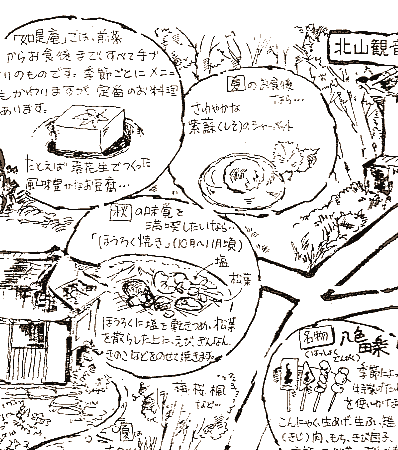 北山観音
「如是庵」では、前菜
からお食後まで、すべて手づ
りのものです。季節ごとにメニュ
もかわりますが、定番のお料理
あります。
たとえば落花生でつくった
風味豊かなお豆腐…
夏のお食後
なら…
さわやかな
紫蘇(しそ)のシャーベット
秋の味覚を
満喫したいなら…
「ほうろく焼き」(10月〜11月頃)
塩
松葉
ほうろくに塩を敷きつめ、松葉
を散らした上に、えび、ぎんなん、
きのこなどをのせて焼きます。
梅・桜・楓
など…
名物
八色
(はっしょく
でんがく)
季節によっ
を使いわけま
こんにゃく、生あげ、生ふ、雉
(きじ)肉、もち、きび団子、